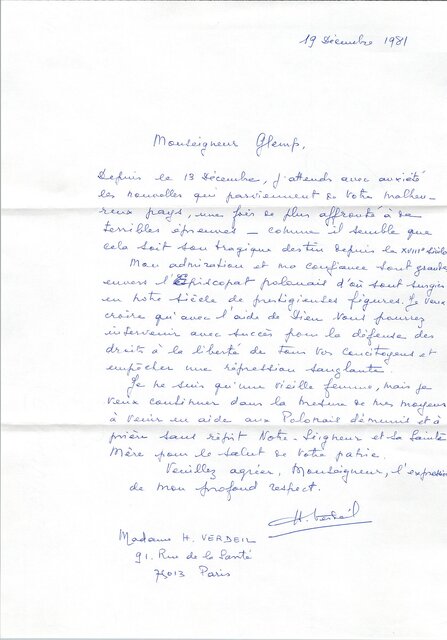 19 Décembre 1981
Monseigneur Glemp,
Depuis le 13 Décembre, j'attends avec anxiété
les nouvelles qui parviennent de votre malheu-
reux pays, une fois de plus affronté à de
terribles épreuves — comme il semble que
cela soit son tragique destin depuis le XVIIIe Siècle
Mon admiration et ma confiance sont grandes
envers l'Episcopat polonais d'où sont surgies
en notre siècle de prestigieuses figures. Je veux
croire qu'avec l'aide de Dieu vous pourrez
intervenir avec succès pour la défense des
droits à la liberté de tous vos concitoyens et
empêcher une répression sanglante.
Je ne suis qu'une vieille femme, mais je
veux continuer dans la mesure de mes moyens
à venir en aide aux Polonais démunis et à
prier sans répit Notre-Seigneur et sa Sainte
Mère pour le salut de votre patrie.
Veuillez agréer, Monseigneur, l'expression
de mon profond respect.
H. Verdeil
Madame H. VERDEIL
91. Rue de la Santé
75013 Paris